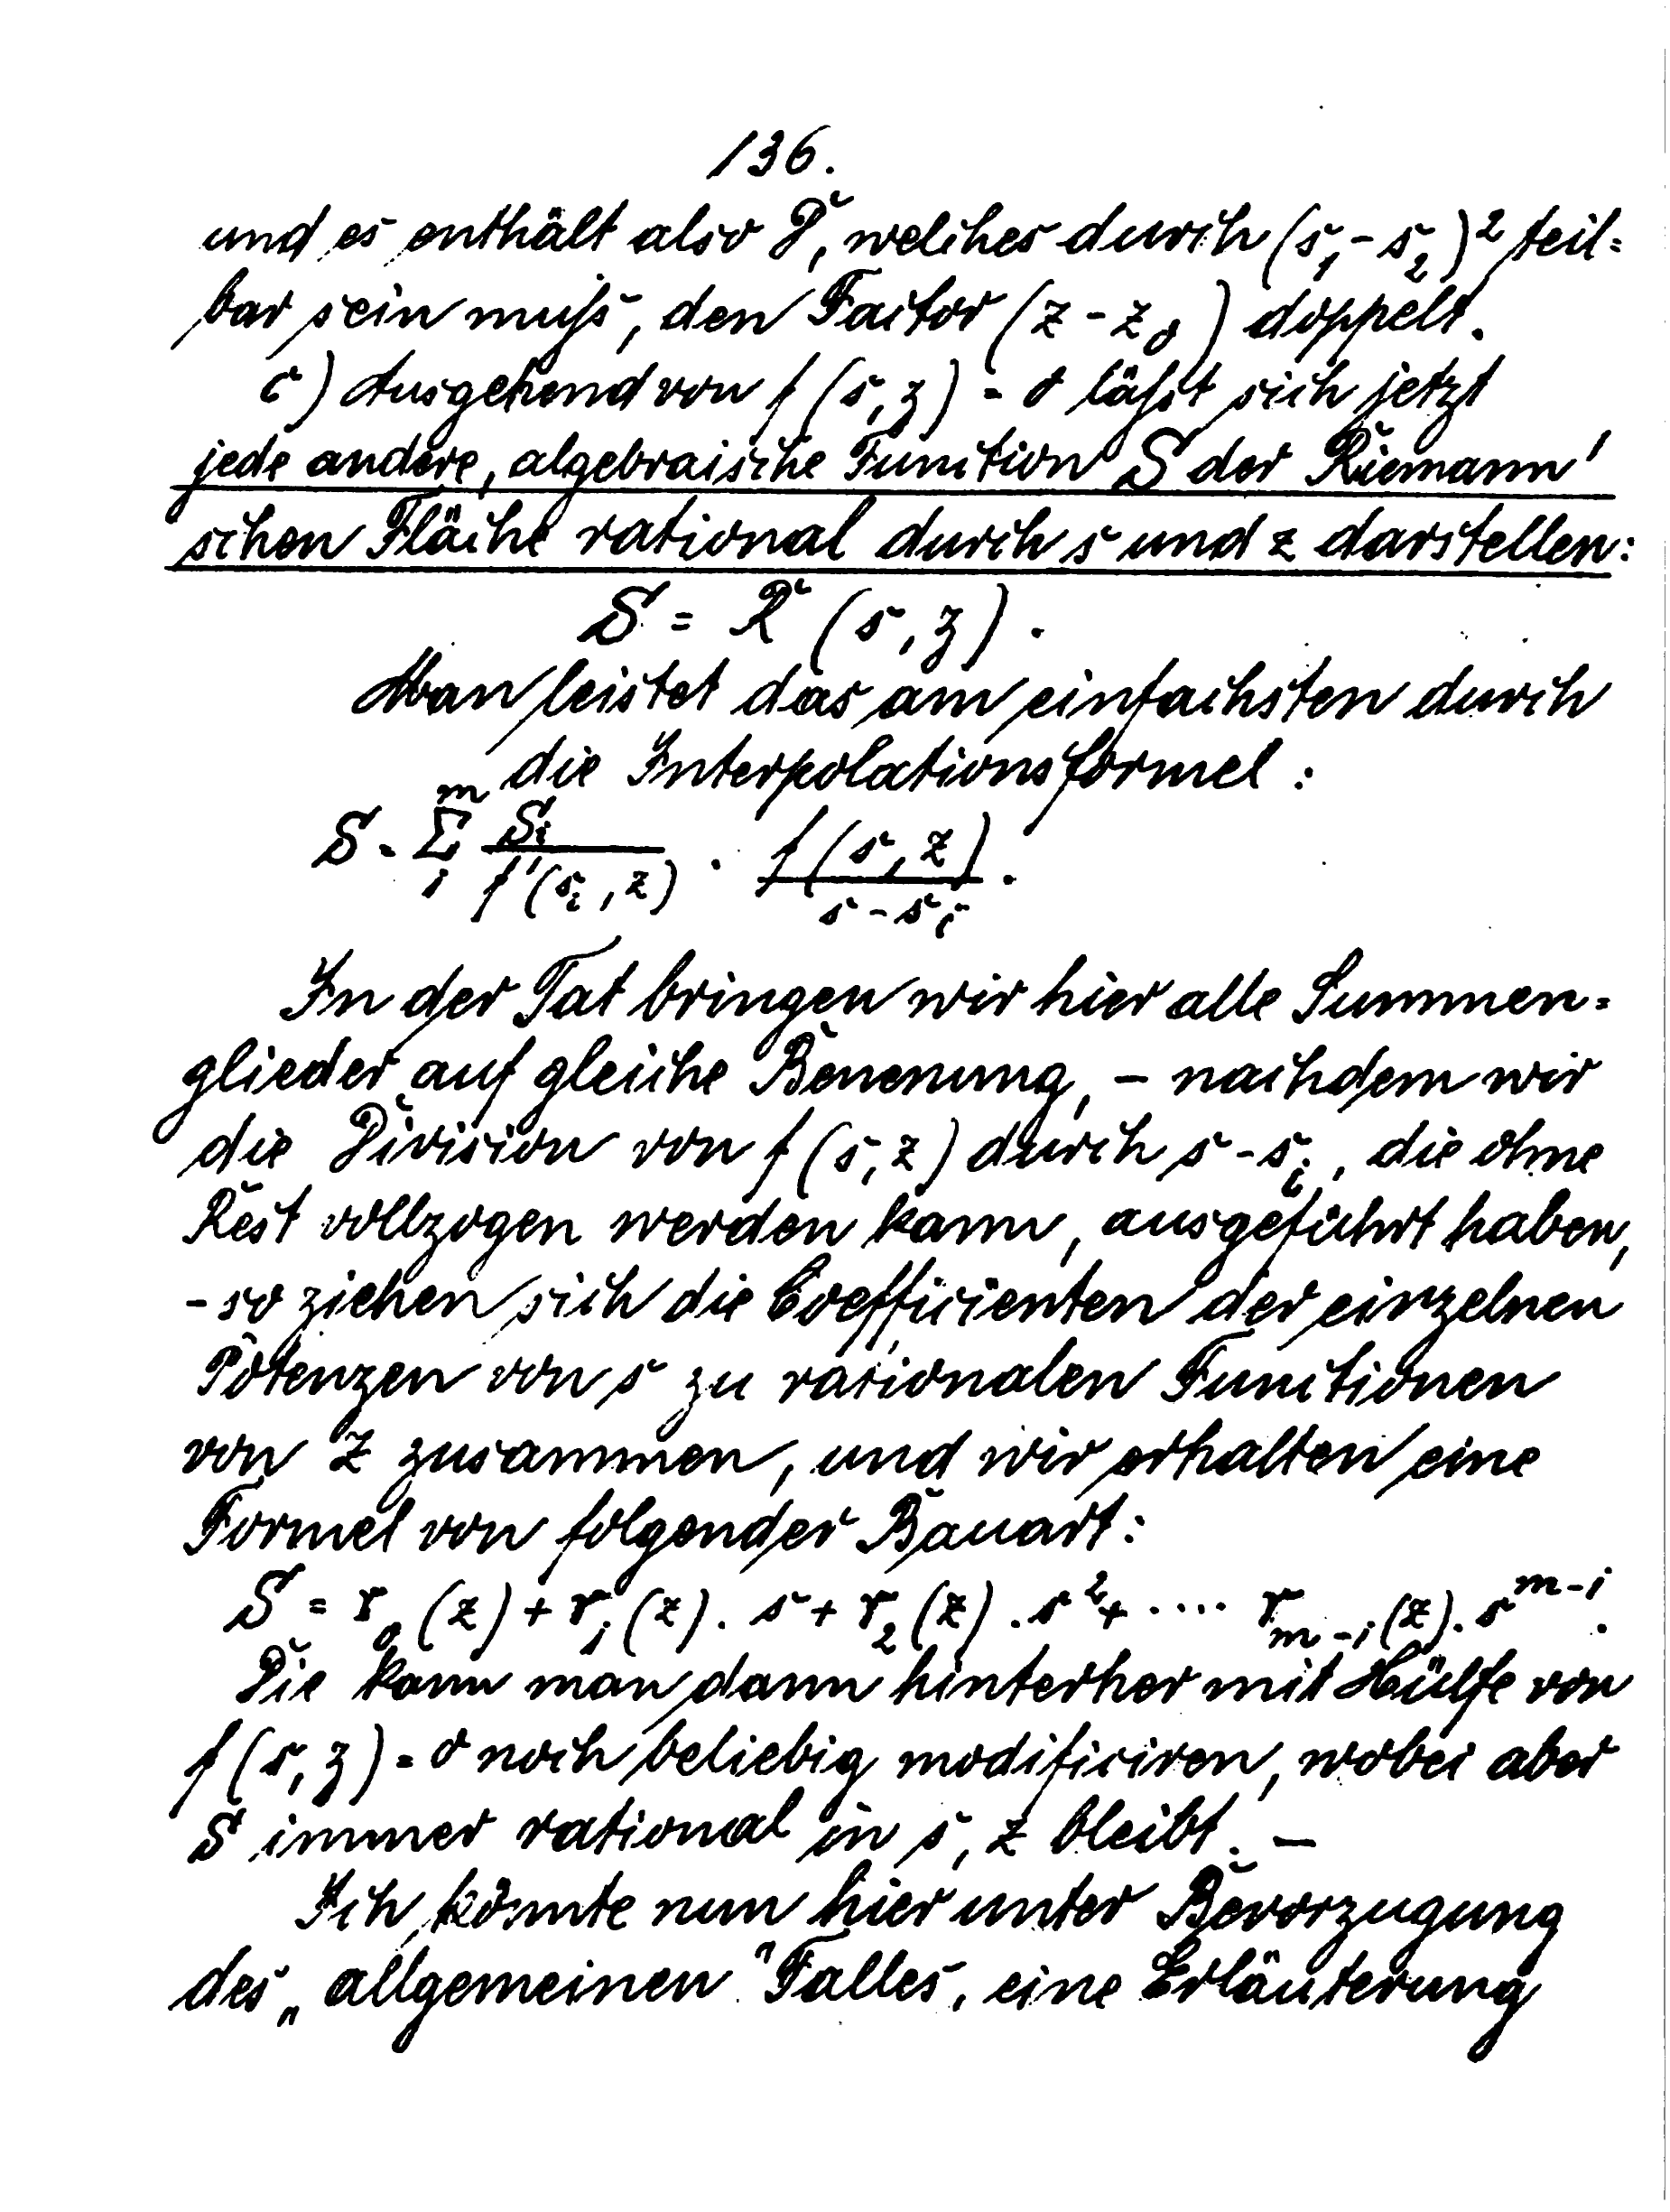 136.
und es enthält also D, welches durch (s₁ - s₂)² teil=
bar sein muß, den Factor (z - z₀) doppelt.
c) Ausgehend von f (s, z) = 0 läßt sich jetzt
jede andere, algebraische Function S der Riemann'
schen Fläche rational durch s und z darstellen:
S = R (s, z).
Man leistet das am einfachsten durch
die Interpolationsformel:
S = Σ₁ᵐ Sᵢ / f'(sᵢ, z) · f(s, z) / s - sᵢ.
In der Tat bringen wir hier alle Summen=
glieder auf gleiche Benenung, - nachdem wir
die Division von f (s, z) durch s - sᵢ, die ohne
Rest vollzogen werden kann, ausgeführt haben,
- so ziehen sich die Coefficienten der einzelnen
Potenzen von s zu rationalen Functionen
von z zusammen, und wir erhalten eine
Formel von folgender Bauart:
S = r₀ (z) + r₁ (z). s + r₂ (z). s² + .... rₘ₋₁ (z). sᵐ⁻¹.
Die kann man dann hinterher mit Hülfe von
f (s, z) = 0 noch beliebig modificiren, wobei aber
S immer rational in s, z bleibt. -
Ich könnte nun hier unter Bevorzugung
des „allgemeinen" Falles, eine Erläuterung